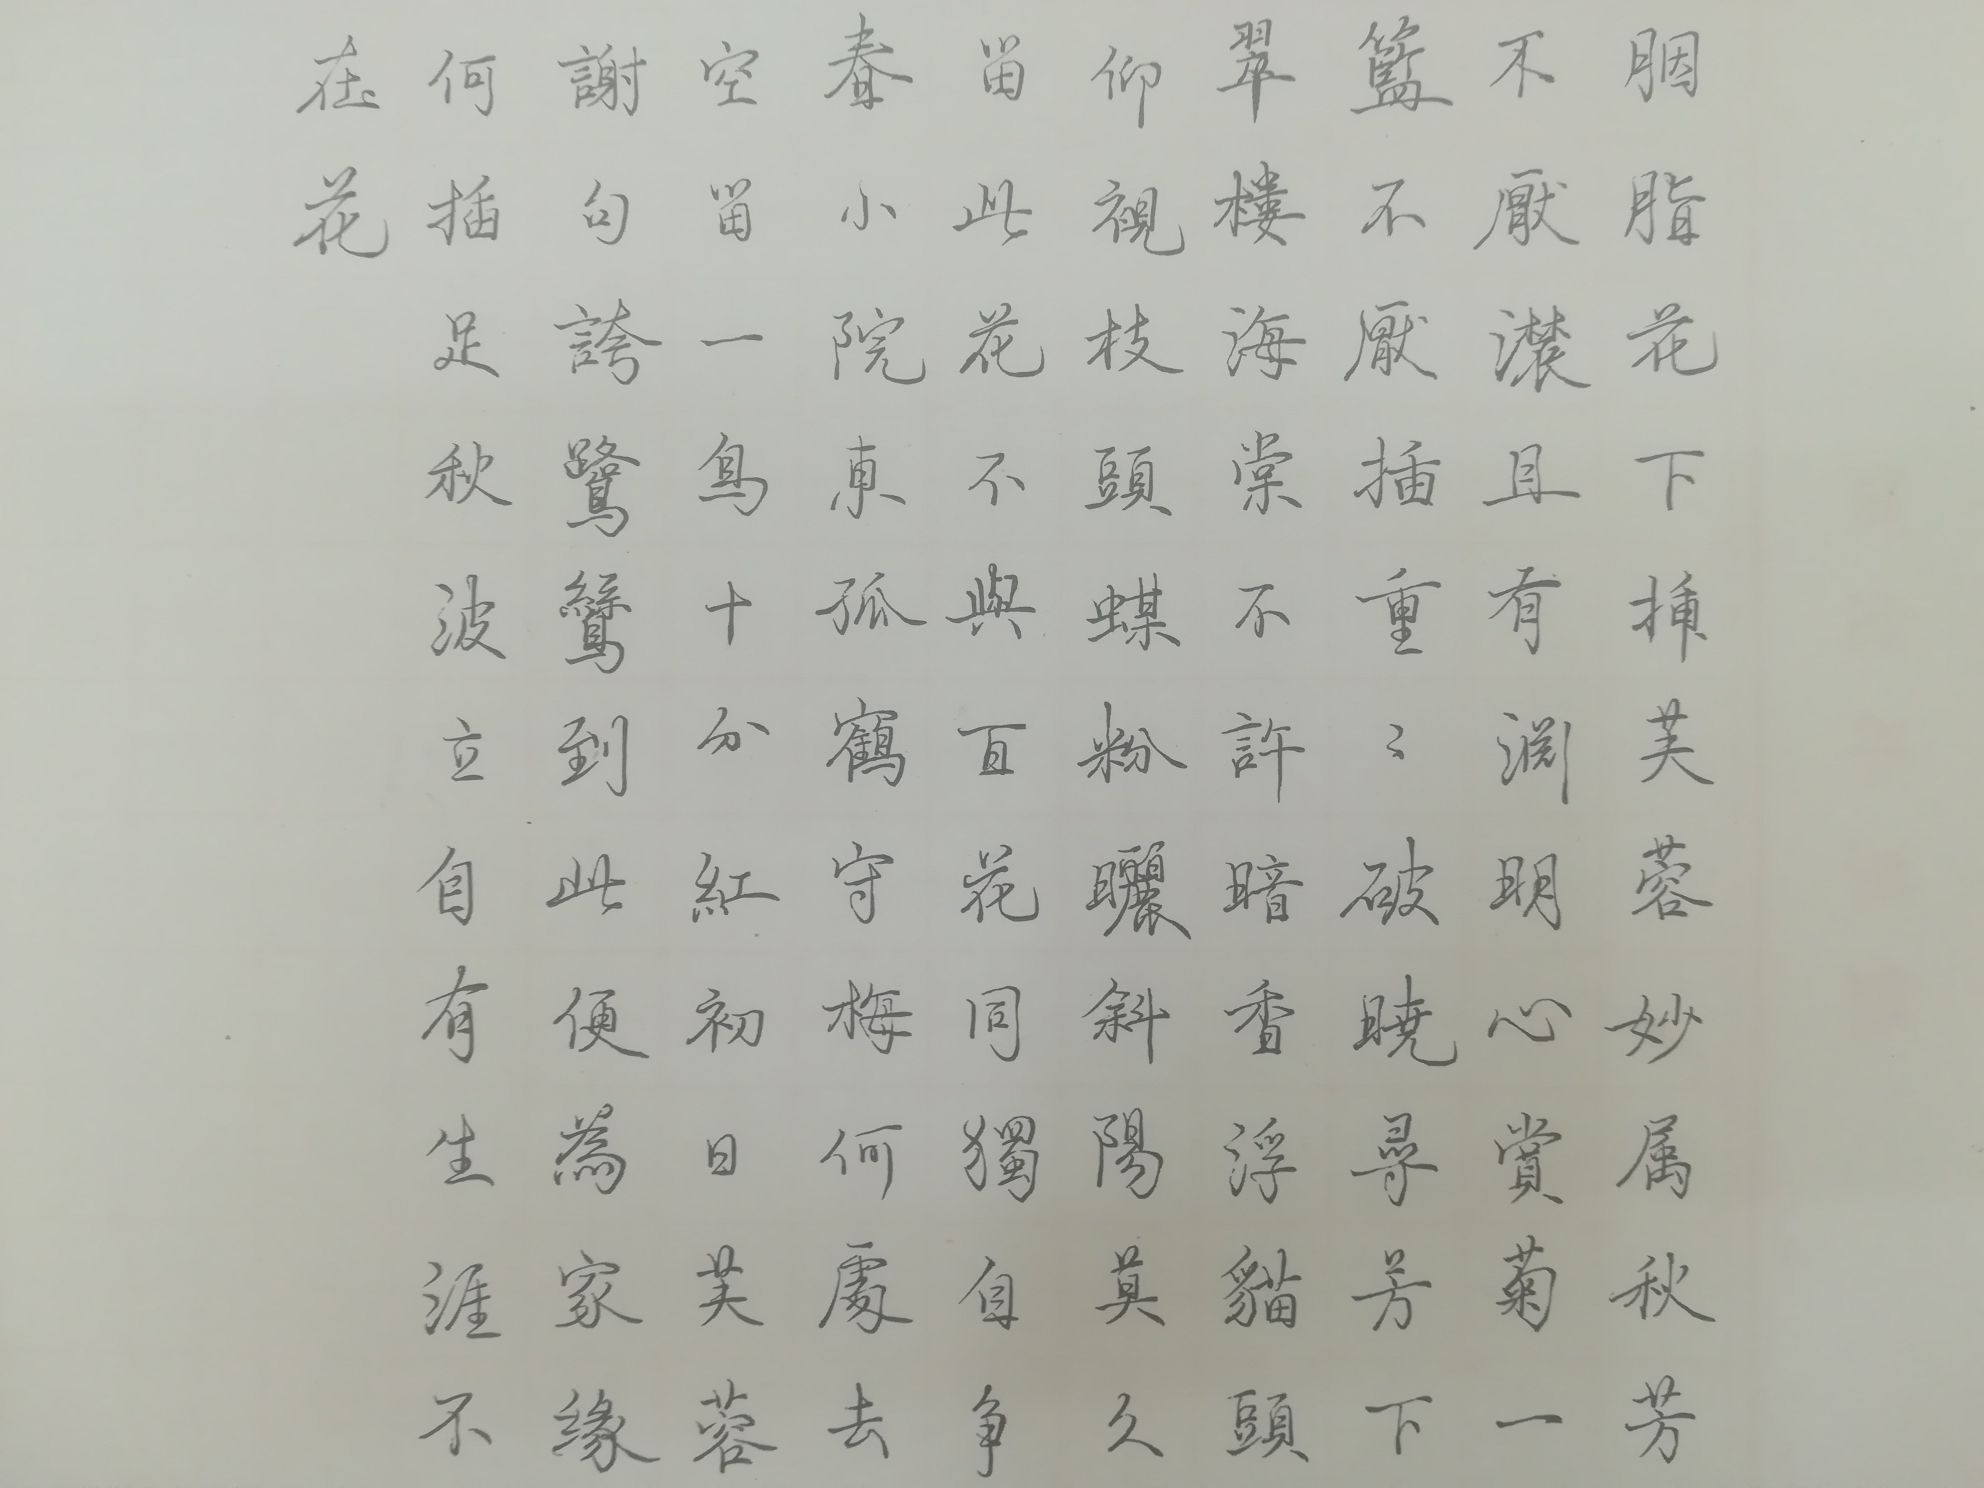 胭脂花下插芙蓉妙属秋芳
不厭濃且有淵明心賞菊一
籃不厭插重〻破曉尋芳下
翠樓海棠不許暗香浮貓頭
仰視枝頭蝶粉曬斜陽莫久
留此花不與百花同獨自争
春小院東孤鶴守梅何處去
空留一鳥十分紅初日芙蓉
謝句誇鷺鷥到此便為家緣
何插足秋波立自有生涯不
在花